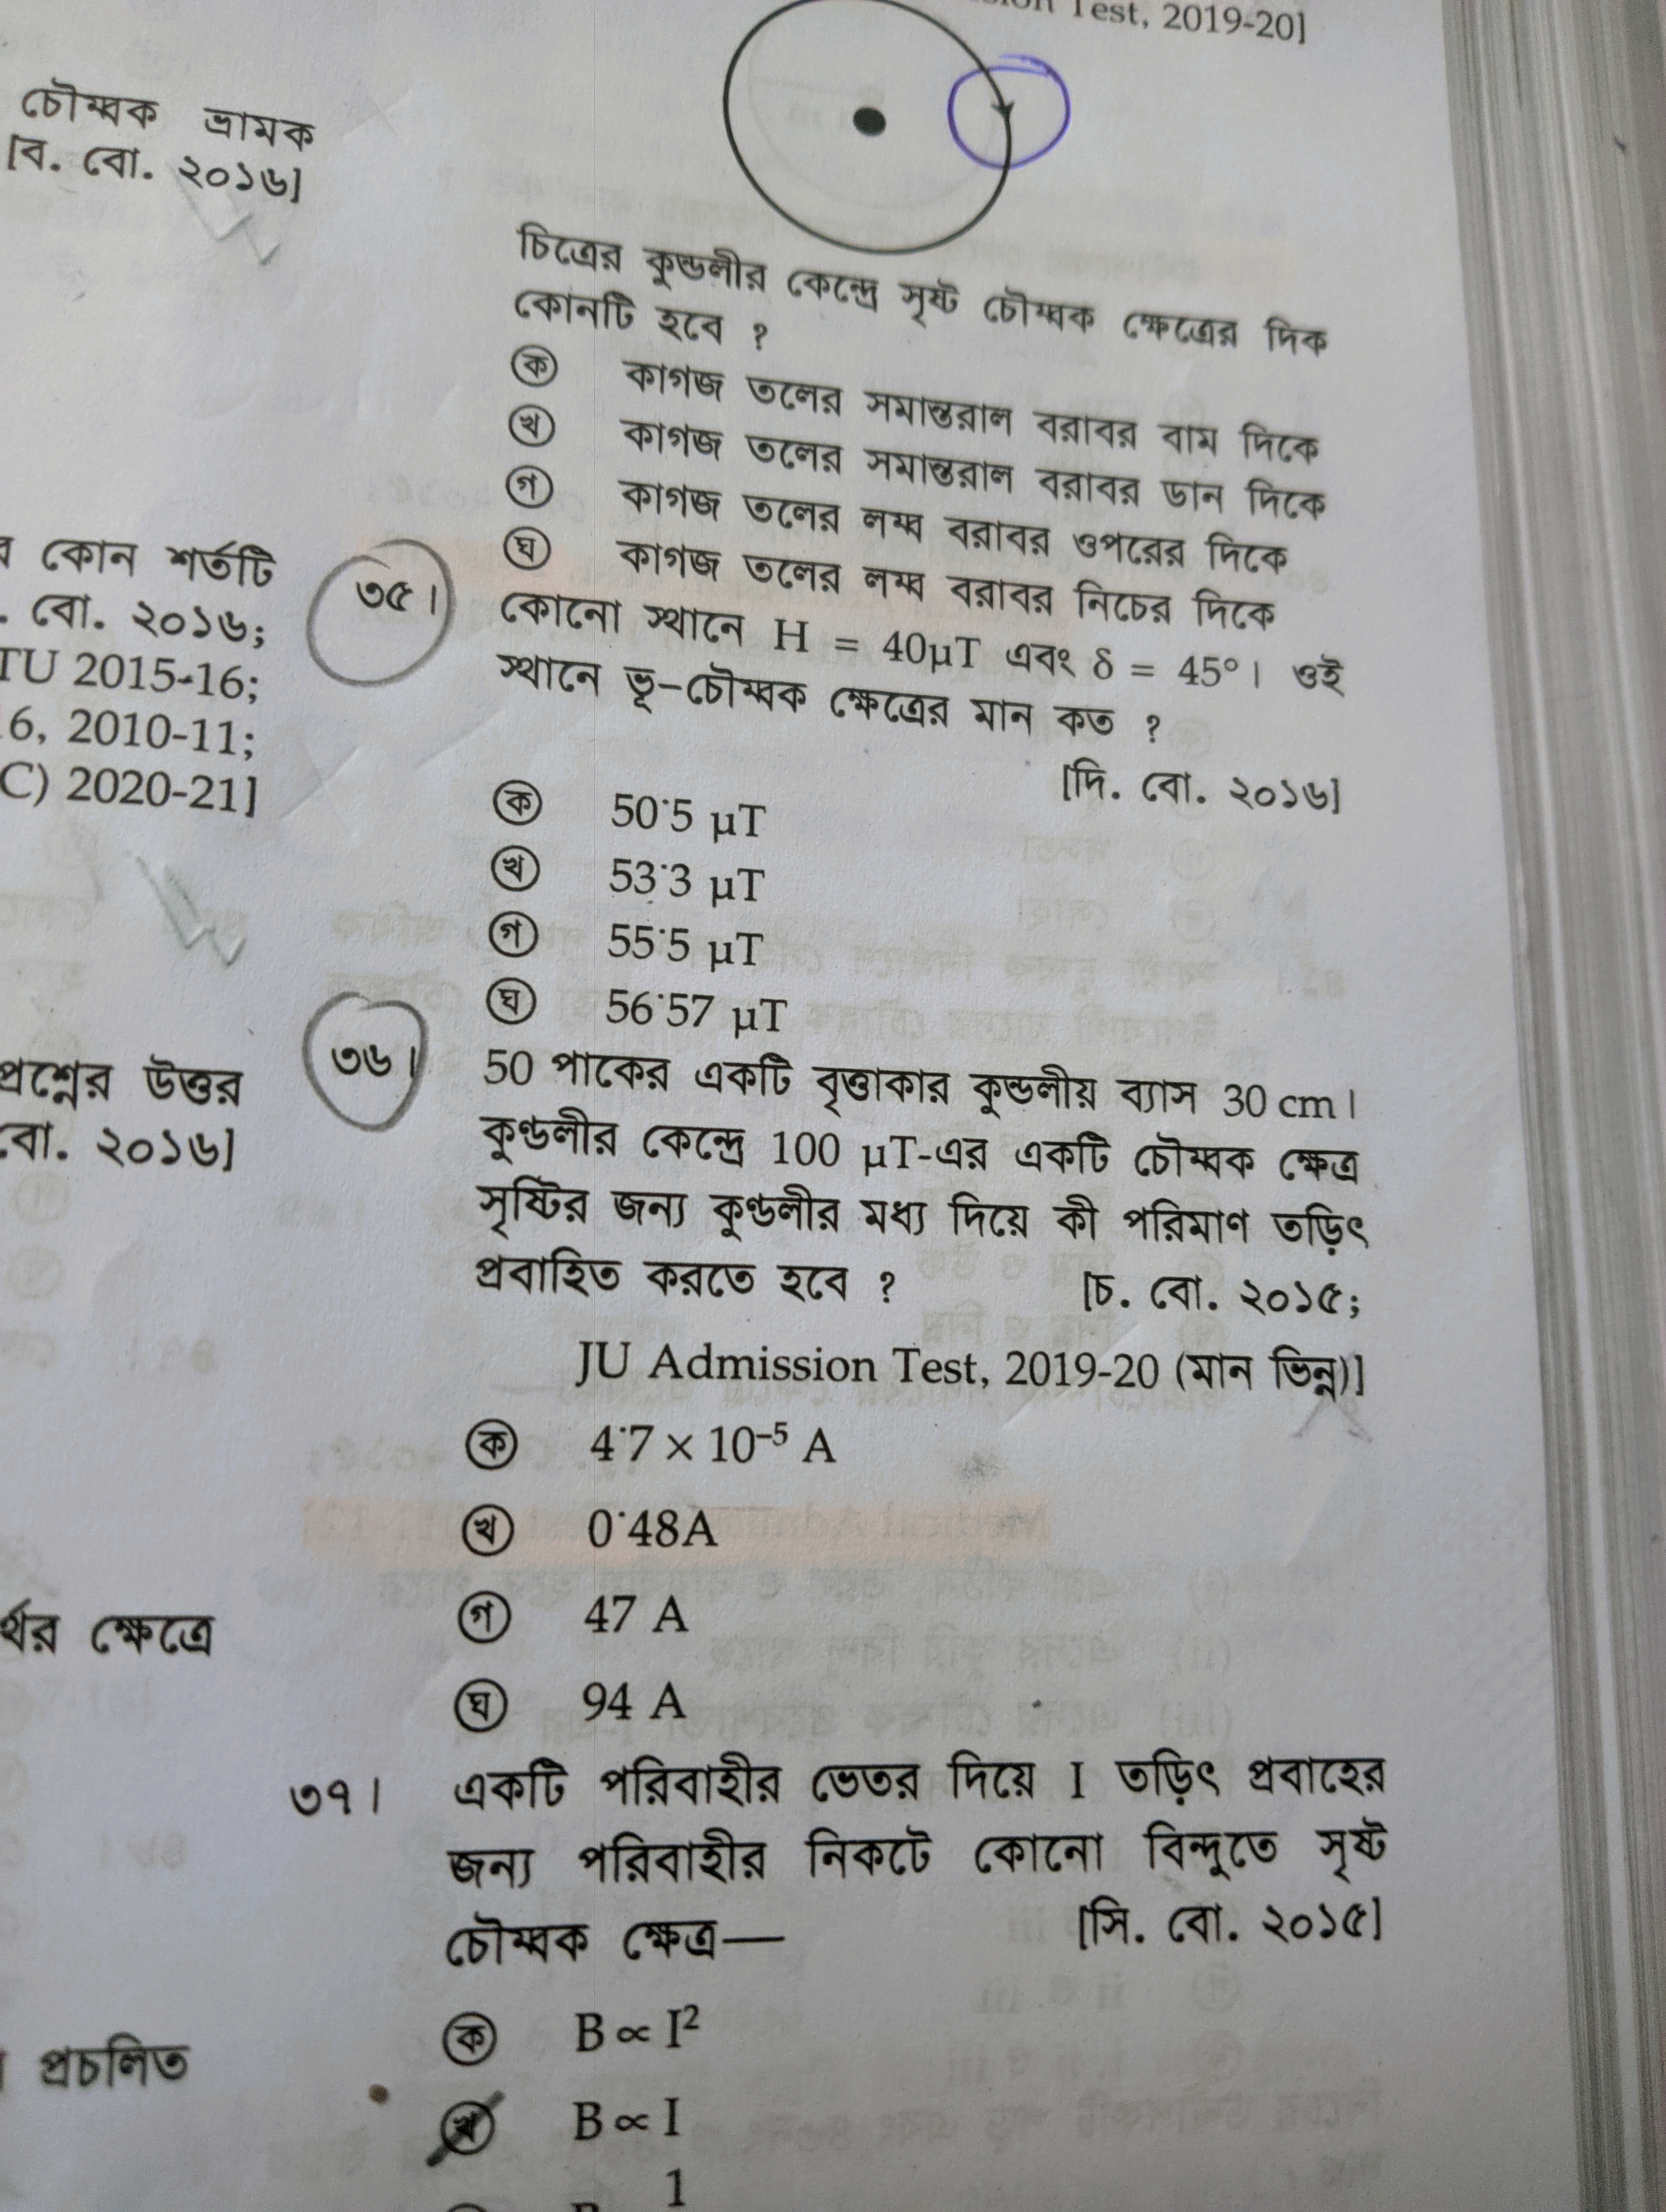 Test, 2019-20]
চৌম্বক ভ্রামক
[ব. বো. ২০১৬]
কোন শর্তটি
. বো. ২০১৬;
TU 2015-16;
6, 2010-11;
C) 2020-21]
প্রশ্নের উত্তর
বো. ২০১৬]
ক্ষেত্রে
প্রচলিত
চিত্রের কুন্ডলীর কেন্দ্রে সৃষ্ট চৌম্বক ক্ষেত্রের দিক
কোনটি হবে ?
ক কাগজ তলের সমান্তরাল বরাবর বাম দিকে
খ কাগজ তলের সমান্তরাল বরাবর ডান দিকে
গ কাগজ তলের লম্ব বরাবর ওপরের দিকে
ঘ কাগজ তলের লম্ব বরাবর নিচের দিকে
৩৫। কোনো স্থানে H = 40μT এবং δ = 45°। ওই
স্থানে ভূ-চৌম্বক ক্ষেত্রের মান কত ?
[দি. বো. ২০১৬]
ক 50·5 μT
খ 53·3 μT
গ 55·5 μT
ঘ 56·57 μT
৩৬। 50 পাকের একটি বৃত্তাকার কুন্ডলীয় ব্যাস 30 cm।
কুণ্ডলীর কেন্দ্রে 100 μT-এর একটি চৌম্বক ক্ষেত্র
সৃষ্টির জন্য কুণ্ডলীর মধ্য দিয়ে কী পরিমাণ তড়িৎ
প্রবাহিত করতে হবে ? [চ. বো. ২০১৫;
JU Admission Test, 2019-20 (মান ভিন্ন)]
ক 4·7 × 10⁻⁵ A
খ 0·48A
গ 47 A
ঘ 94 A
৩৭। একটি পরিবাহীর ভেতর দিয়ে I তড়িৎ প্রবাহের
জন্য পরিবাহীর নিকটে কোনো বিন্দুতে সৃষ্ট
চৌম্বক ক্ষেত্র— [সি. বো. ২০১৫]
ক B ∝ I²
খ B ∝ I
1